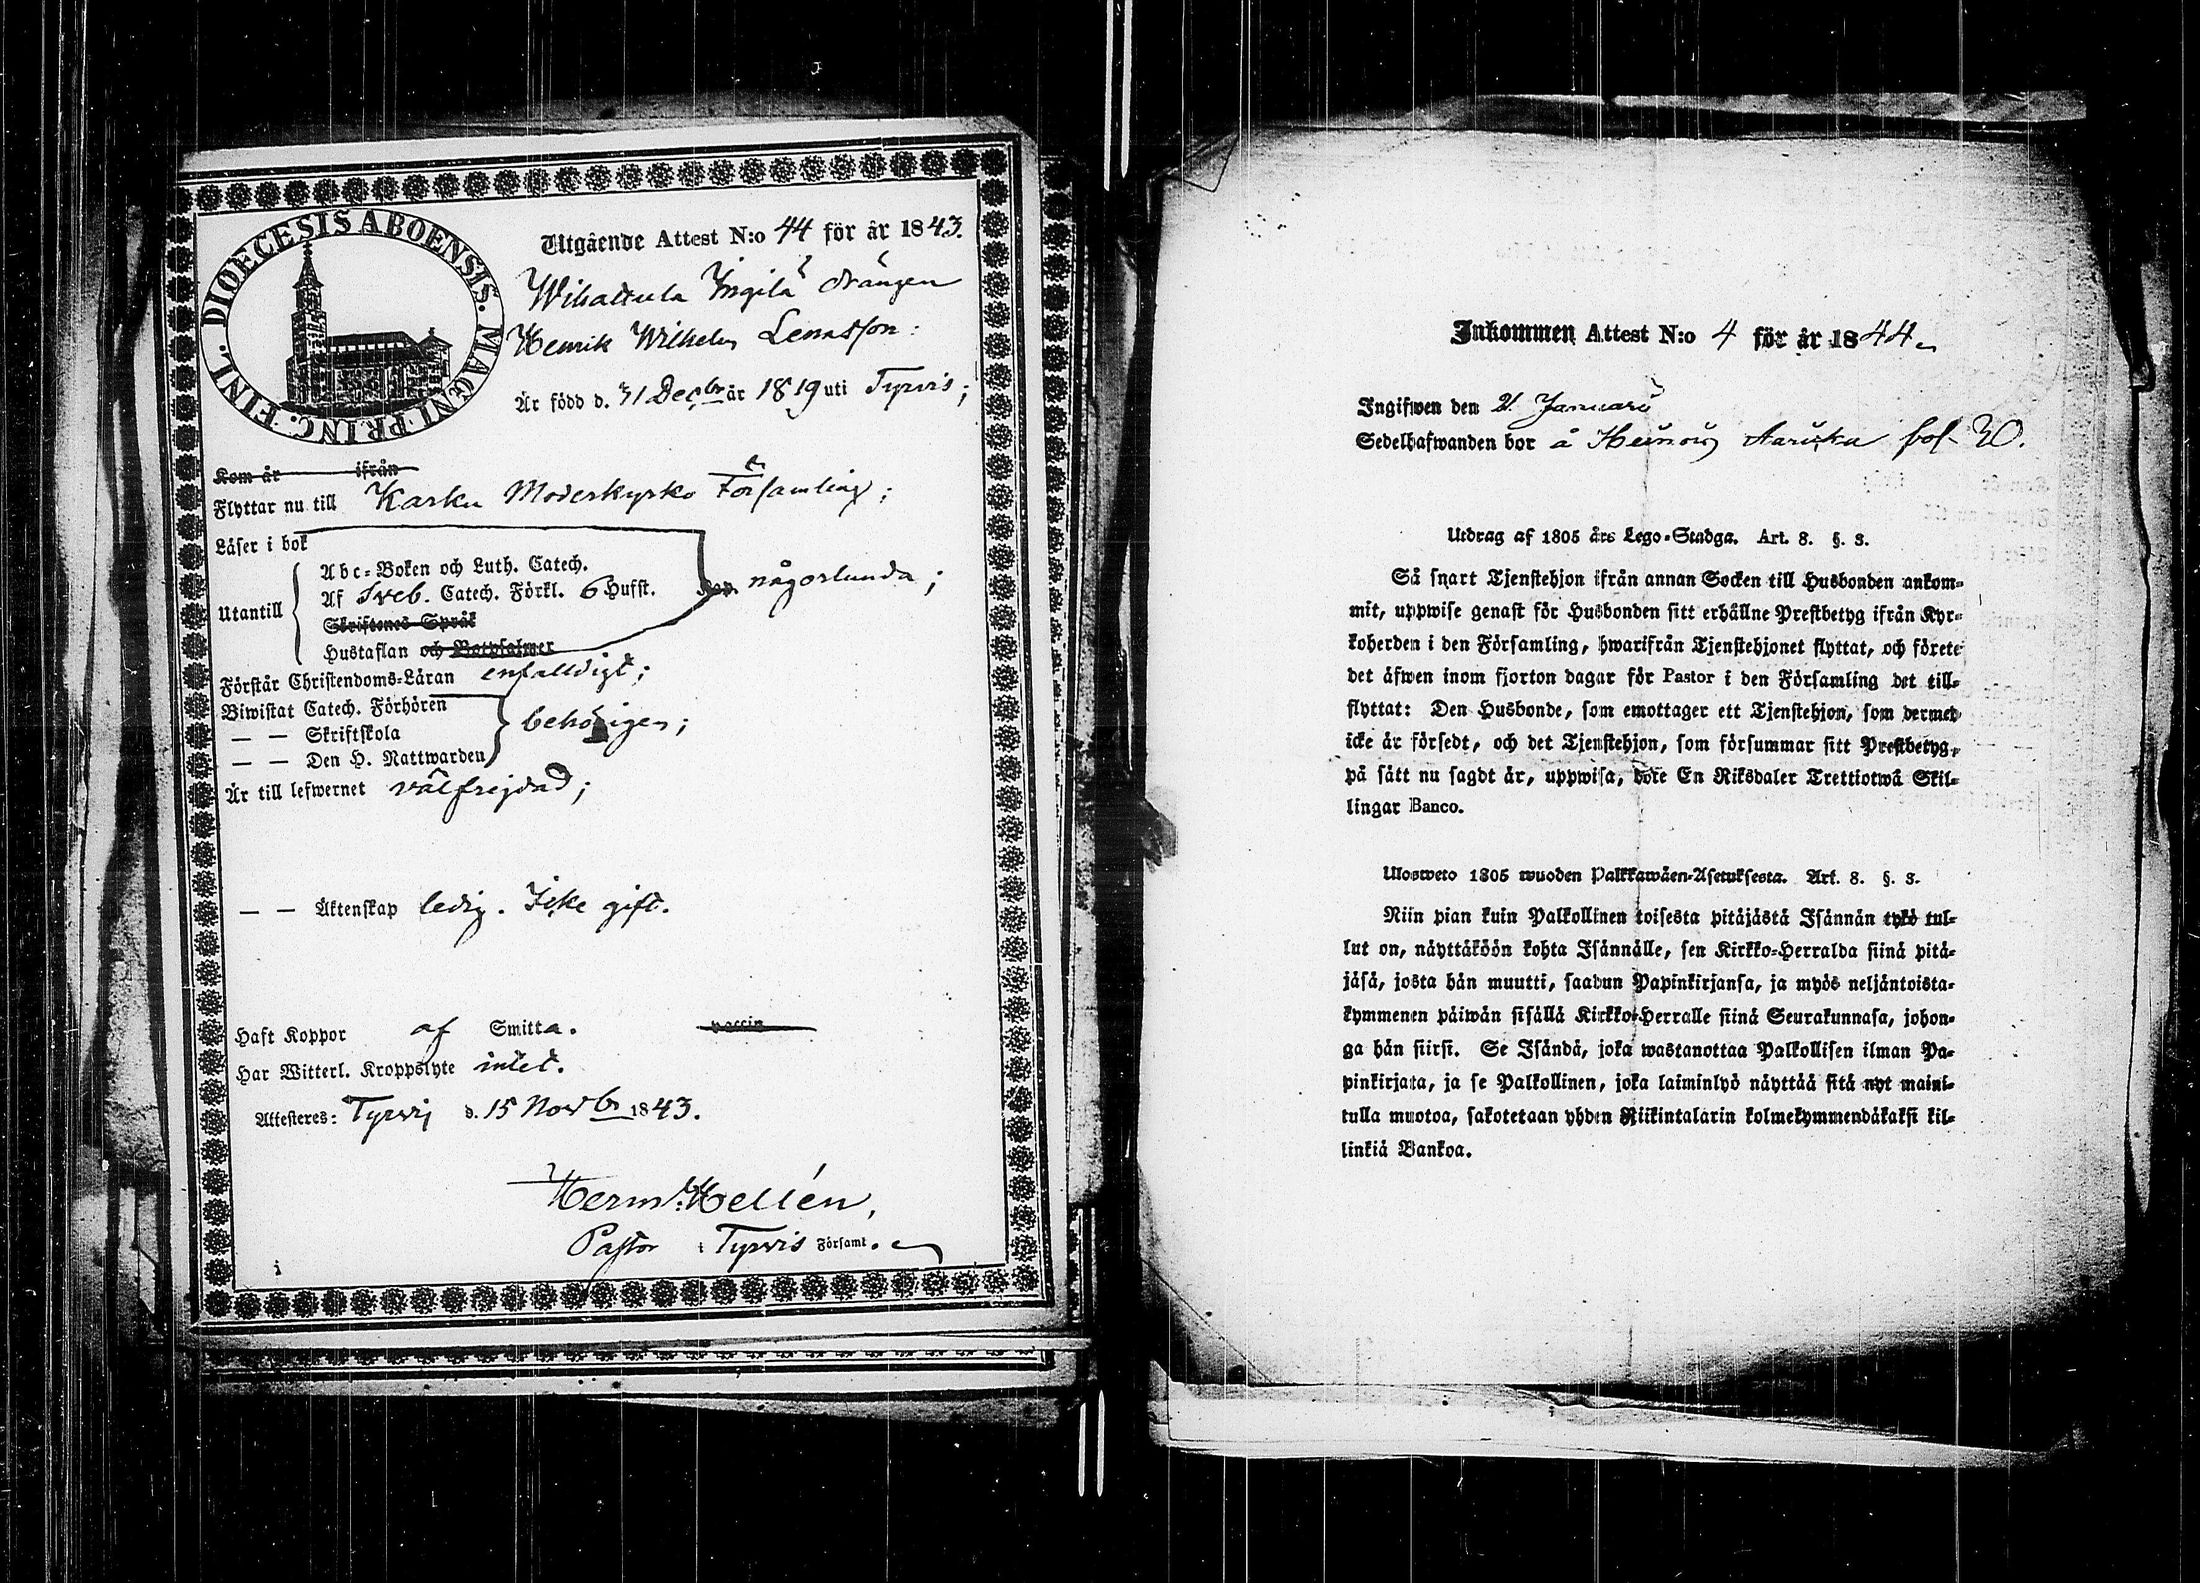 DIOECESIS ABOENSIS. MAGNI PRINC. FINL.
Utgående Attest N:o 44 för år 1843.
Ingilä drängen
Henrik Wilhelm Lenasson:
Är född d. 31 Decbr år 1819 uti Tyrvis;
Kom år ifrån
Flyttar nu till Karku Moderkyrko Församling;
Läser i bok
Abc-Boken och Luth. Catech.
Utantill Af Sveb. Catech. Förkl. 6 Hufst. någorlunda;
Skriftenes Språk
Hustaflan och Botpsalmer
Förstår Christendoms-Läran enfalldigt;
Biwistat Catech. Förhören
— — Skriftskola behörigen;
— — Den H. Nattwarden
Är till lefwernet välfrejdad;
— — Äktenskap ledig. Icke gift.
Haft Koppor af Smitta. vaccin
Har Witterl. Kroppslyte intet.
Attesteres: Tyrvis d. 15 Novbr 1843.
Herm. Hellén,
Pastor i Tyrvis Församl.
Inkommen Attest N:o 4 för år 1844
Ingifwen den 2. Januarii
Sedelhafwanden bor å Heinois fol. 30.
Utdrag af 1805 års Lego-Stadga. Art. 8. §. 3.
Så snart Tjenstehjon ifrån annan Socken till Husbonden ankom-
mit, uppwise genast för Husbonden sitt erhållne Prestbetyg ifrån Kyr-
koherden i den Församling, hwarifrån Tjenstehjonet flyttat, och förete
det äfwen inom fjorton dagar för Pastor i den Församling det till-
flyttat: Den Husbonde, som emottager ett Tjenstehjon, som dermed
icke är försedt, och det Tjenstehjon, som försummar sitt Prestbetyg,
på sätt nu sagdt är, uppwisa, böte En Riksdaler Trettiotwå Skil-
lingar Banco.
Ulosweto 1805 wuoden Palkkawäen-Asetuksesta. Art. 8. §. 3.
Niin pian kuin Palkollinen toisesta pitäjästä Isännän tykö tul-
lut on, näyttäköön kohta Isännälle, sen Kirkko-Herralda siinä pitä-
jäsä, josta hän muutti, saadun Papinkirjansa, ja myös neljäntoista-
kymmenen päiwän sisällä Kirkko-Herralle siinä Seurakunnasa, johon-
ga hän siirsi. Se Isändä, joka wastanottaa Palkollisen ilman Pa-
pinkirjata, ja se Palkollinen, joka laiminlyö näyttää sitä nyt maini-
tulla muotoa, sakotetaan yhden Riikintalarin kolmekymmendäkaksi kil-
linkiä Bankoa.